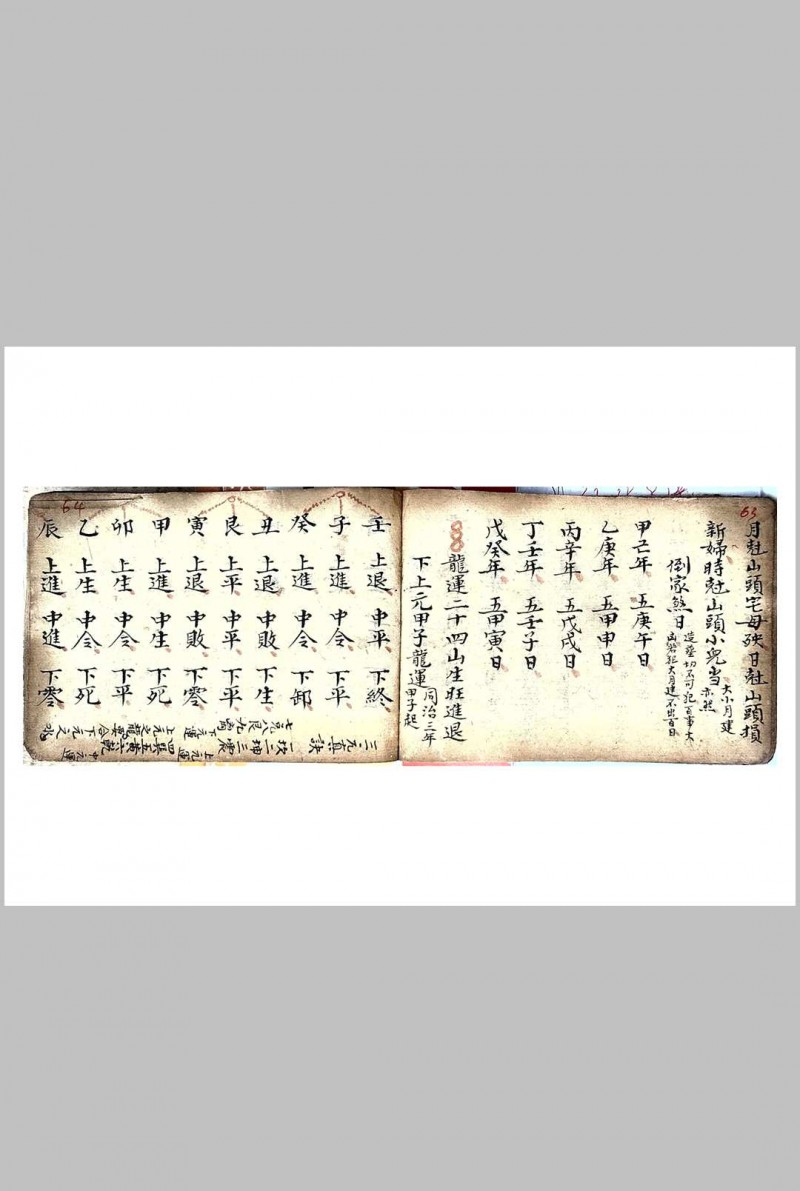 63
月尅山頭宅母殃日尅山頭損
新婦時尅山頭小兒当
大小月建
亦然
倒家煞日
造塟切不可犯百事大
凶若犯大月建不出百日
甲己年 五庚午日
乙庚年 五甲申日
丙辛年 五戊戌日
丁壬年 五壬子日
戊癸年 五甲寅日
龍運二十四山生旺進退
下上元甲子龍運
同治三年
甲子起
64
壬 上退 中平 下終
子 上進 中令 下平
癸 上進 中令 下卸
丑 上退 中敗 下生
艮 上平 中平 下平
寅 上退 中敗 下零
甲 上進 中生 下死
卯 上生 中令 下平
乙 上生 中令 下死
辰 上進 中進 下零
三元真訣
一坎二坤三震
上元運
四巽五黄六乾
中元運
七兌八艮九离
下元運
上元之龍要合下元之水